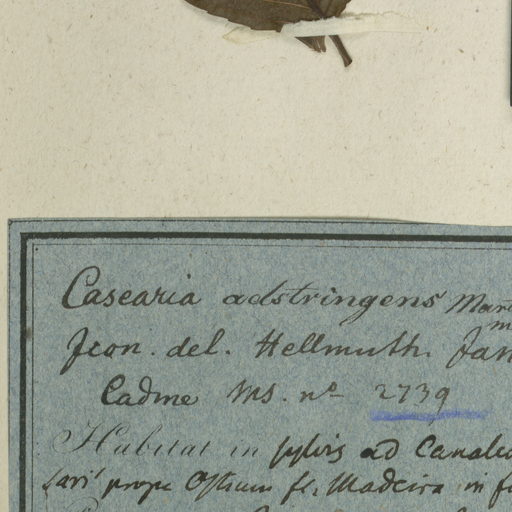 Casearia adstringens Mart
Icon. del. Hellmuth. Jan
Cadme Ms. nº 2739
Habitat in sylvis ad Canale
prope Ostium fl. Madeira in